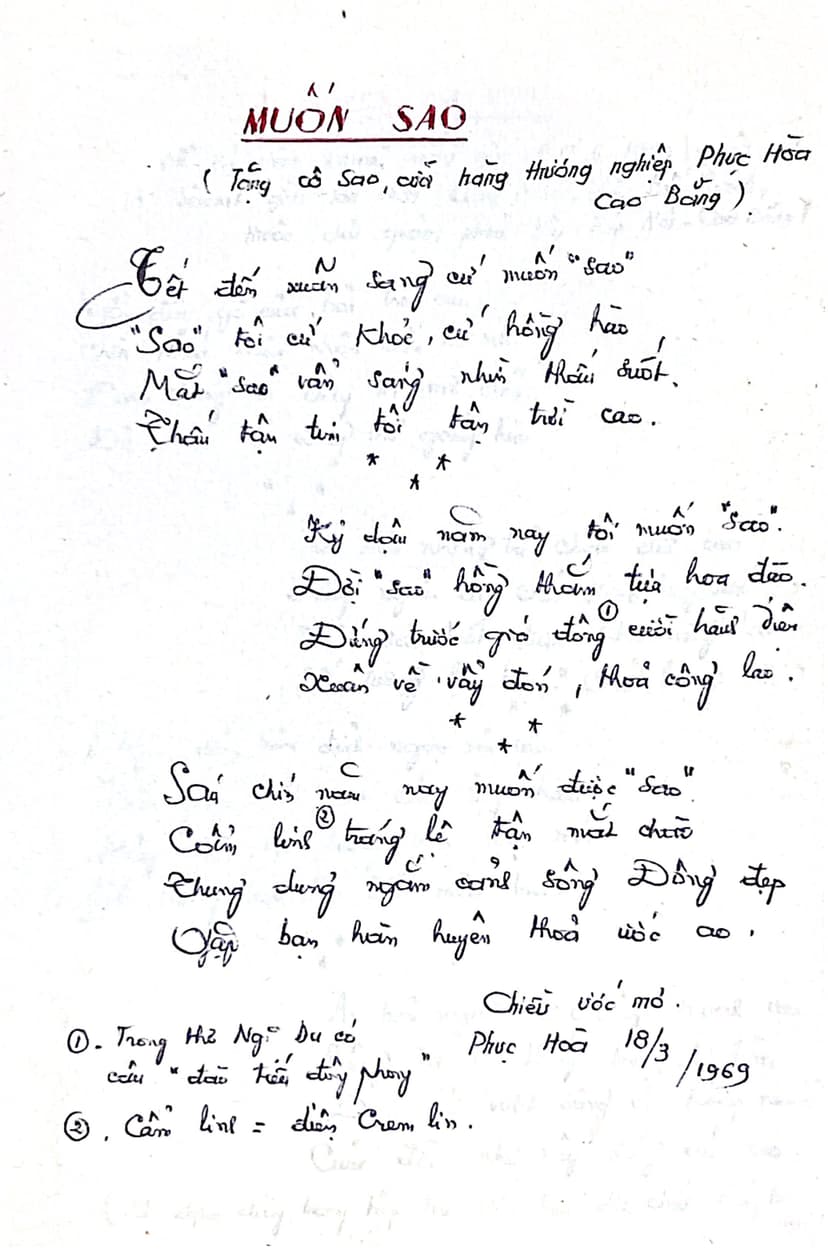 MUỐN SAO
( Tặng cô Sao, cửa hàng thương nghiệp Phục Hòa
Cao Bằng ).
Tết đến xuân sang cứ muốn "sao"
"Sao" tôi cứ khoẻ, cứ hồng hào
Mắt "sao" vẫn sáng nhìn thấu suốt.
Thấu tận tim tôi tận trời cao.
* * *
Kỷ dậu năm nay tôi muốn "sao".
Đời "sao" hồng thắm tựa hoa đào.
Đứng trước gió đông ① cười hàm
Xuân về vẫy đón, thoả công lao.
* * *
Sáu chín năm nay muốn được "sao"
Cẩm linh ② tráng lệ tận mắt chào
Thung dung ngắm cảnh sông Đông đẹp
Gặp bạn hàn huyên thoả ước ao.
Chiều ước mơ.
Phục Hoà 18/3/1969
①- Trong thơ Du có
câu "đào tiếu đông phong"
②. Cẩm linh = điện Cremlin.